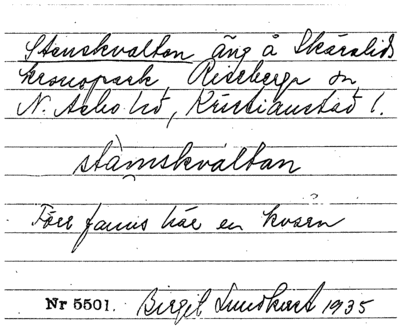 Stenskvaltan äng å Skäralids
kronopark, Riseberga sn,
N. Åsbo hd, Kristianstad l.
stàmskvàltan
Förr fanns här en kvarn
Nr 5501. Birgit Lundkvist 1935